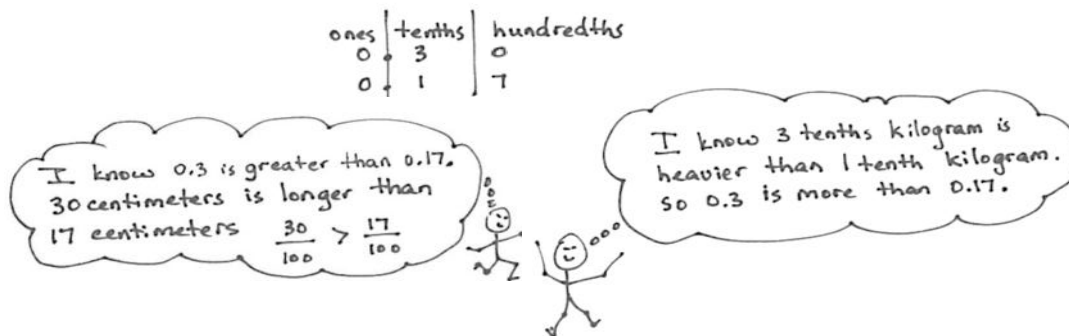 ones tenths hundredths
0 . 3 0
0 . 1 7
I know 0.3 is greater than 0.17.
30 centimeters is longer than
17 centimeters 30/100 > 17/100
I know 3 tenths kilogram is
heavier than 1 tenth kilogram.
so 0.3 is more than 0.17.